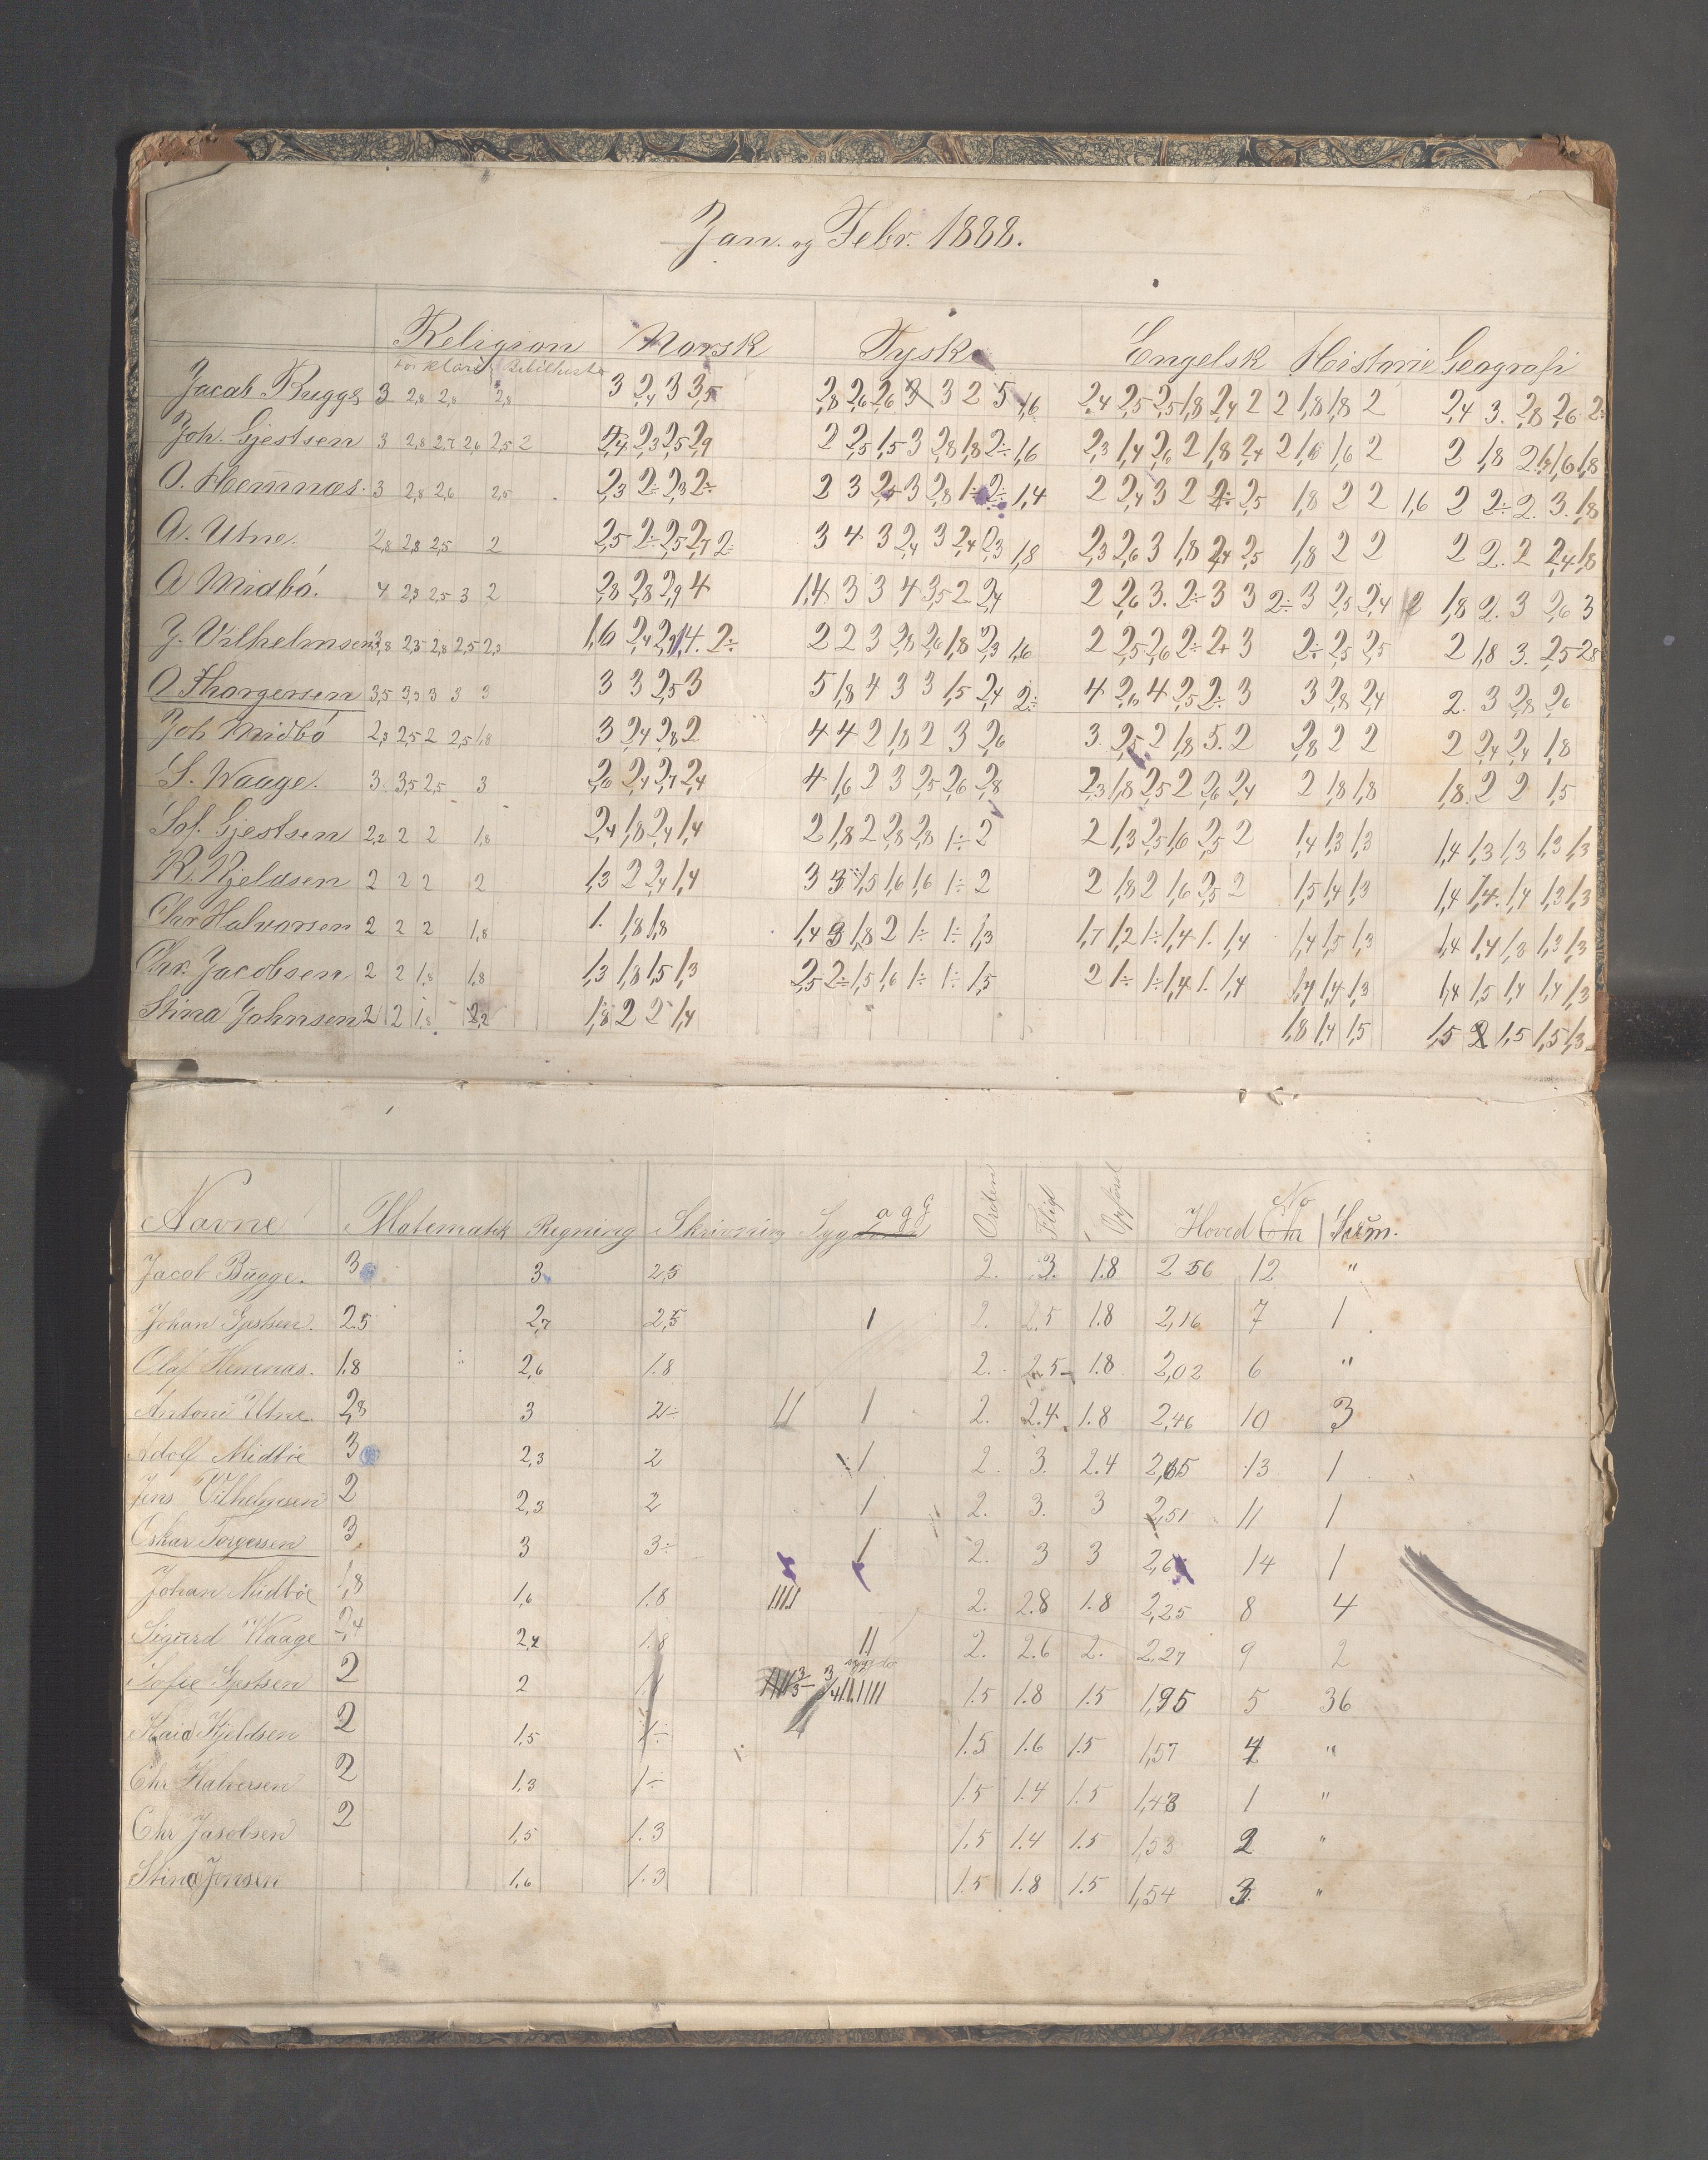 Jan. og Febr. 1888.
Religion Norsk Tysk Engelsk Historie Geografi
Forklar Bibelhist
Jacob Bugge 3 2,8 2,8 2,8 3 2,4 3 3,5 2,8 2,6 2,6 3 3 2 5 1,6 2,4 2,5 2,5 1,8 2,4 2 2 1,8 1,8 2 2,4 3. 2,8 2,6 2÷
Joh. Gjestsen 3 2,8 2,7 2,6 2,5 2 2,4 2,3 2,5 2,9 2 2,5 1,5 3 2,8 1,8 2÷ 1,6 2,3 1,4 2,6 2 1,8 2,4 2 1,6 1,6 2 2 1,8 2,4 1,6 1,8
O. Hemnæs. 3 2,8 2,6 2,5 2,3 2÷ 2,3 2÷ 2 3 2,5 3 2,8 1÷ 2÷ 1,4 2 2,4 3 2 2÷ 2,5 1,8 2 2 1,6 2 2÷ 2. 3. 1,8
A. Utne. 2,8 2,8 2,5 2 2,5 2÷ 2,5 2,7 2÷ 3 4 3 2,4 3 2,4 2,3 1,8 2,3 2,6 3 1,8 2,4 2,5 1,8 2 2 2 2. 2 2,4 1,8
A Midbö. 4 2,8 2,5 3 2 2,8 2,8 2,9 4 1,4 3 3 4 3,5 2 2,4 2 2,6 3. 2÷ 3 3 2÷ 3 2,5 2,4 2 1,8 2. 3 2,6 3
J. Vilhelmsen 3,8 2,5 2,8 2,5 2,3 1,6 2,4 2,2 1,4. 2÷ 2 2 3 2,8 2,6 1,8 2,3 1,6 2 2,5 2,6 2÷ 2+ 3 2÷ 2,5 2,5 2 1,8 3. 2,5 2,8
O Thorgersen 3,5 3,3 3 3 3 3 3 2,5 3 5 1,8 4 3 3 1,5 2,4 2÷ 4 2,6 4 2,5 2÷ 3 3 2,8 2,4 2. 3 2,8 2,6
Joh Midbö 2,3 2,5 2 2,5 1,8 3 2,4 2,8 2 4 4 2 1,8 2 3 2,6 3. 2,5 2 1,8 5. 2 2,8 2 2 2 2,4 2,4 1,8
S. Waage. 3 3,5 2,5 3 2,6 2,4 2,7 2,4 4 1,6 2 3 2,5 2,6 2,8 2,3 1,8 2,5 2 2,6 2,4 2 1,8 1,8 1,8. 2 2 1,5
Sof. Gjestsen 2,2 2 2 1,8 2,4 1,8 2,4 1,4 2 1,8 2 2,8 2,8 1÷ 2 2 1,3 2,5 1,6 2,5 2 1,4 1,3 1,3 1,4 1,3 1,3 1,3 1,3
K. Kjeldsen 2 2 2 2 1,3 2 2,4 1,4 3 3 1,5 1,6 1,6 1÷ 2 2 1,8 2 1,6 2,5 2 1,5 1,4 1,3 1,4 1,4. 1,4 1,3 1,3
Chr Halvorsen 2 2 2 1,8 1. 1,8 1,8 1,4 3 1,8 2 1÷ 1÷ 1,3 1,7 1,2 1÷ 1,4 1. 1,4 1,4 1,5 1,3 1,4 1,4 1,3 1,3 1,3
Chr. Jacobsen 2 2 1,8 1,8 1,3 1,8 1,5 1,3 2,5 2÷ 1,5 1,6 1÷ 1÷ 1,5 2 1÷ 1÷ 1,4 1. 1,4 1,4 1,4 1,3 1,4 1,5 1,4 1,4 1,3
Stina Johnsen 2 2 1,8 2,2 1,8 2 2 1,4 1,8 1,4 1,5 1,5 2 1,5 1,5 1,3
Navne Matematik Regning Skrivning Orden Flid Opförsel Hoved No Chr Forsm.
Jacob Bugge. 3 3 2,5 2. 3. 1.8 2 56 12 "
Johan Gjestsen. 2.5 2,7 2,5 1 2. 2.5 1.8 2,16 7 1
Olaf Hemnæs. 1.8 2,6 1.8 2. 2.5 1.8 2,02 6 "
Antoni Utne. 2,8 3 2÷ 11 1 2. 2.4 1.8 2,46 10 3
Adolf Midböe 3 2,3 2 1 2. 3. 2.4 2,65 13 1
Jens Vilhelmsen 2 2,3 2 1 2. 3. 3 2,51 11 1
Oskar Torgersen 3 3 3÷ 1 2. 3 3 2,6 14 1
Johan Midböe 1,8 1,6 1.8 1111 2. 2.8 1.8 2,25 8 4
Sigurd Waage 2,4 2,4 1.8 11 2. 2.6 2. 2,27 9 2
Sofie Gjestsen 2 2 1.5 1.8 1.5 1,95 5 36
Kaia Kjeldsen 2 1,5 1÷ 1.5 1.6 1.5 1,57 4 "
Chr Halversen 2 1,3 1÷ 1.5 1.4 1.5 1,43 1 "
Chr Jacobsen 2 1,5 1.3 1.5 1.4 1.5 1,53 2 "
Stina Jonsen 1,6 1.3 1.5 1.8 1.5 1,54 3. "